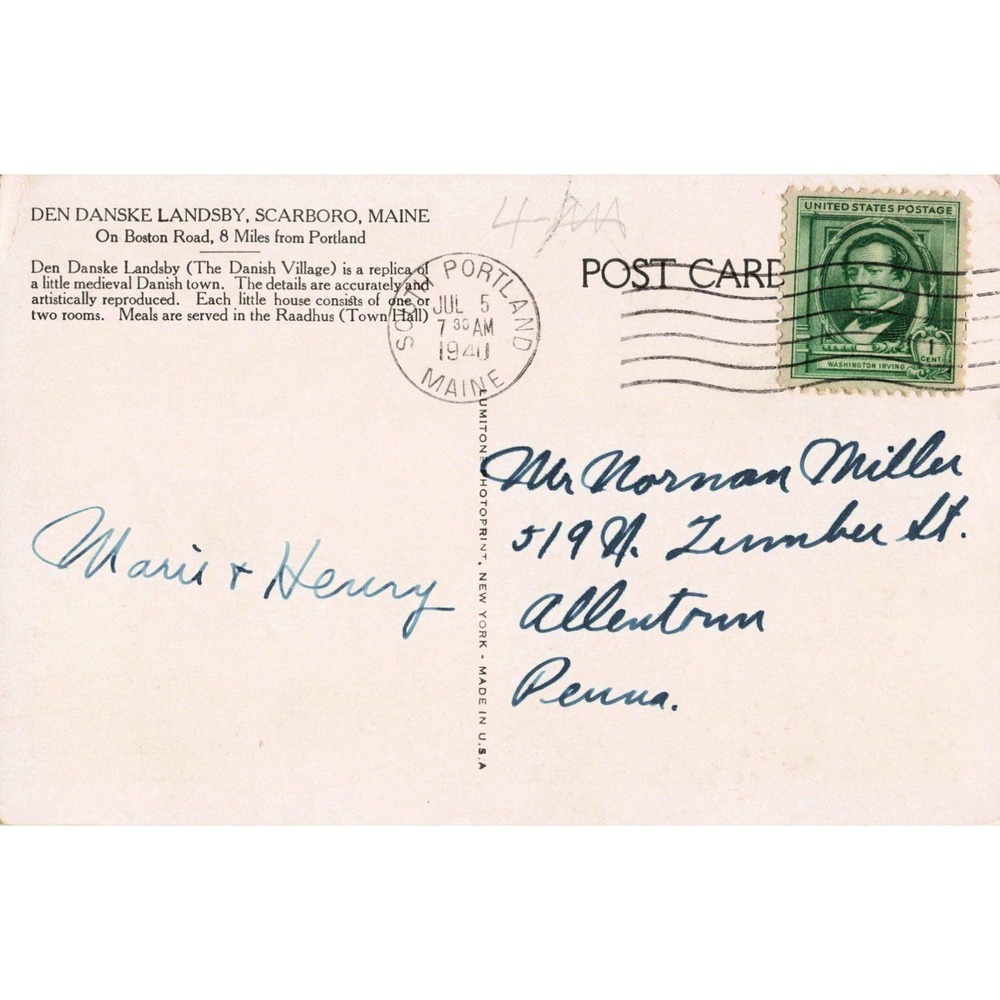 DEN DANSKE LANDSBY, SCARBORO, MAINE
On Boston Road, 8 Miles from Portland
Den Danske Landsby (The Danish Village) is a replica of
a little medieval Danish town. The details are accurately and
artistically reproduced. Each little house consists of one or
two rooms. Meals are served in the Raadhus (Town Hall)
SOUTH PORTLAND
JUL 5
7 30 AM
1940
MAINE
POST CARD
UNITED STATES POSTAGE
1
CENT
WASHINGTON IRVING
LUMITONE PHOTOPRINT, NEW YORK - MADE IN U.S.A
Marie + Henry
Mr Norman Miller
519 N. Lumber St.
Allentown
Penna.